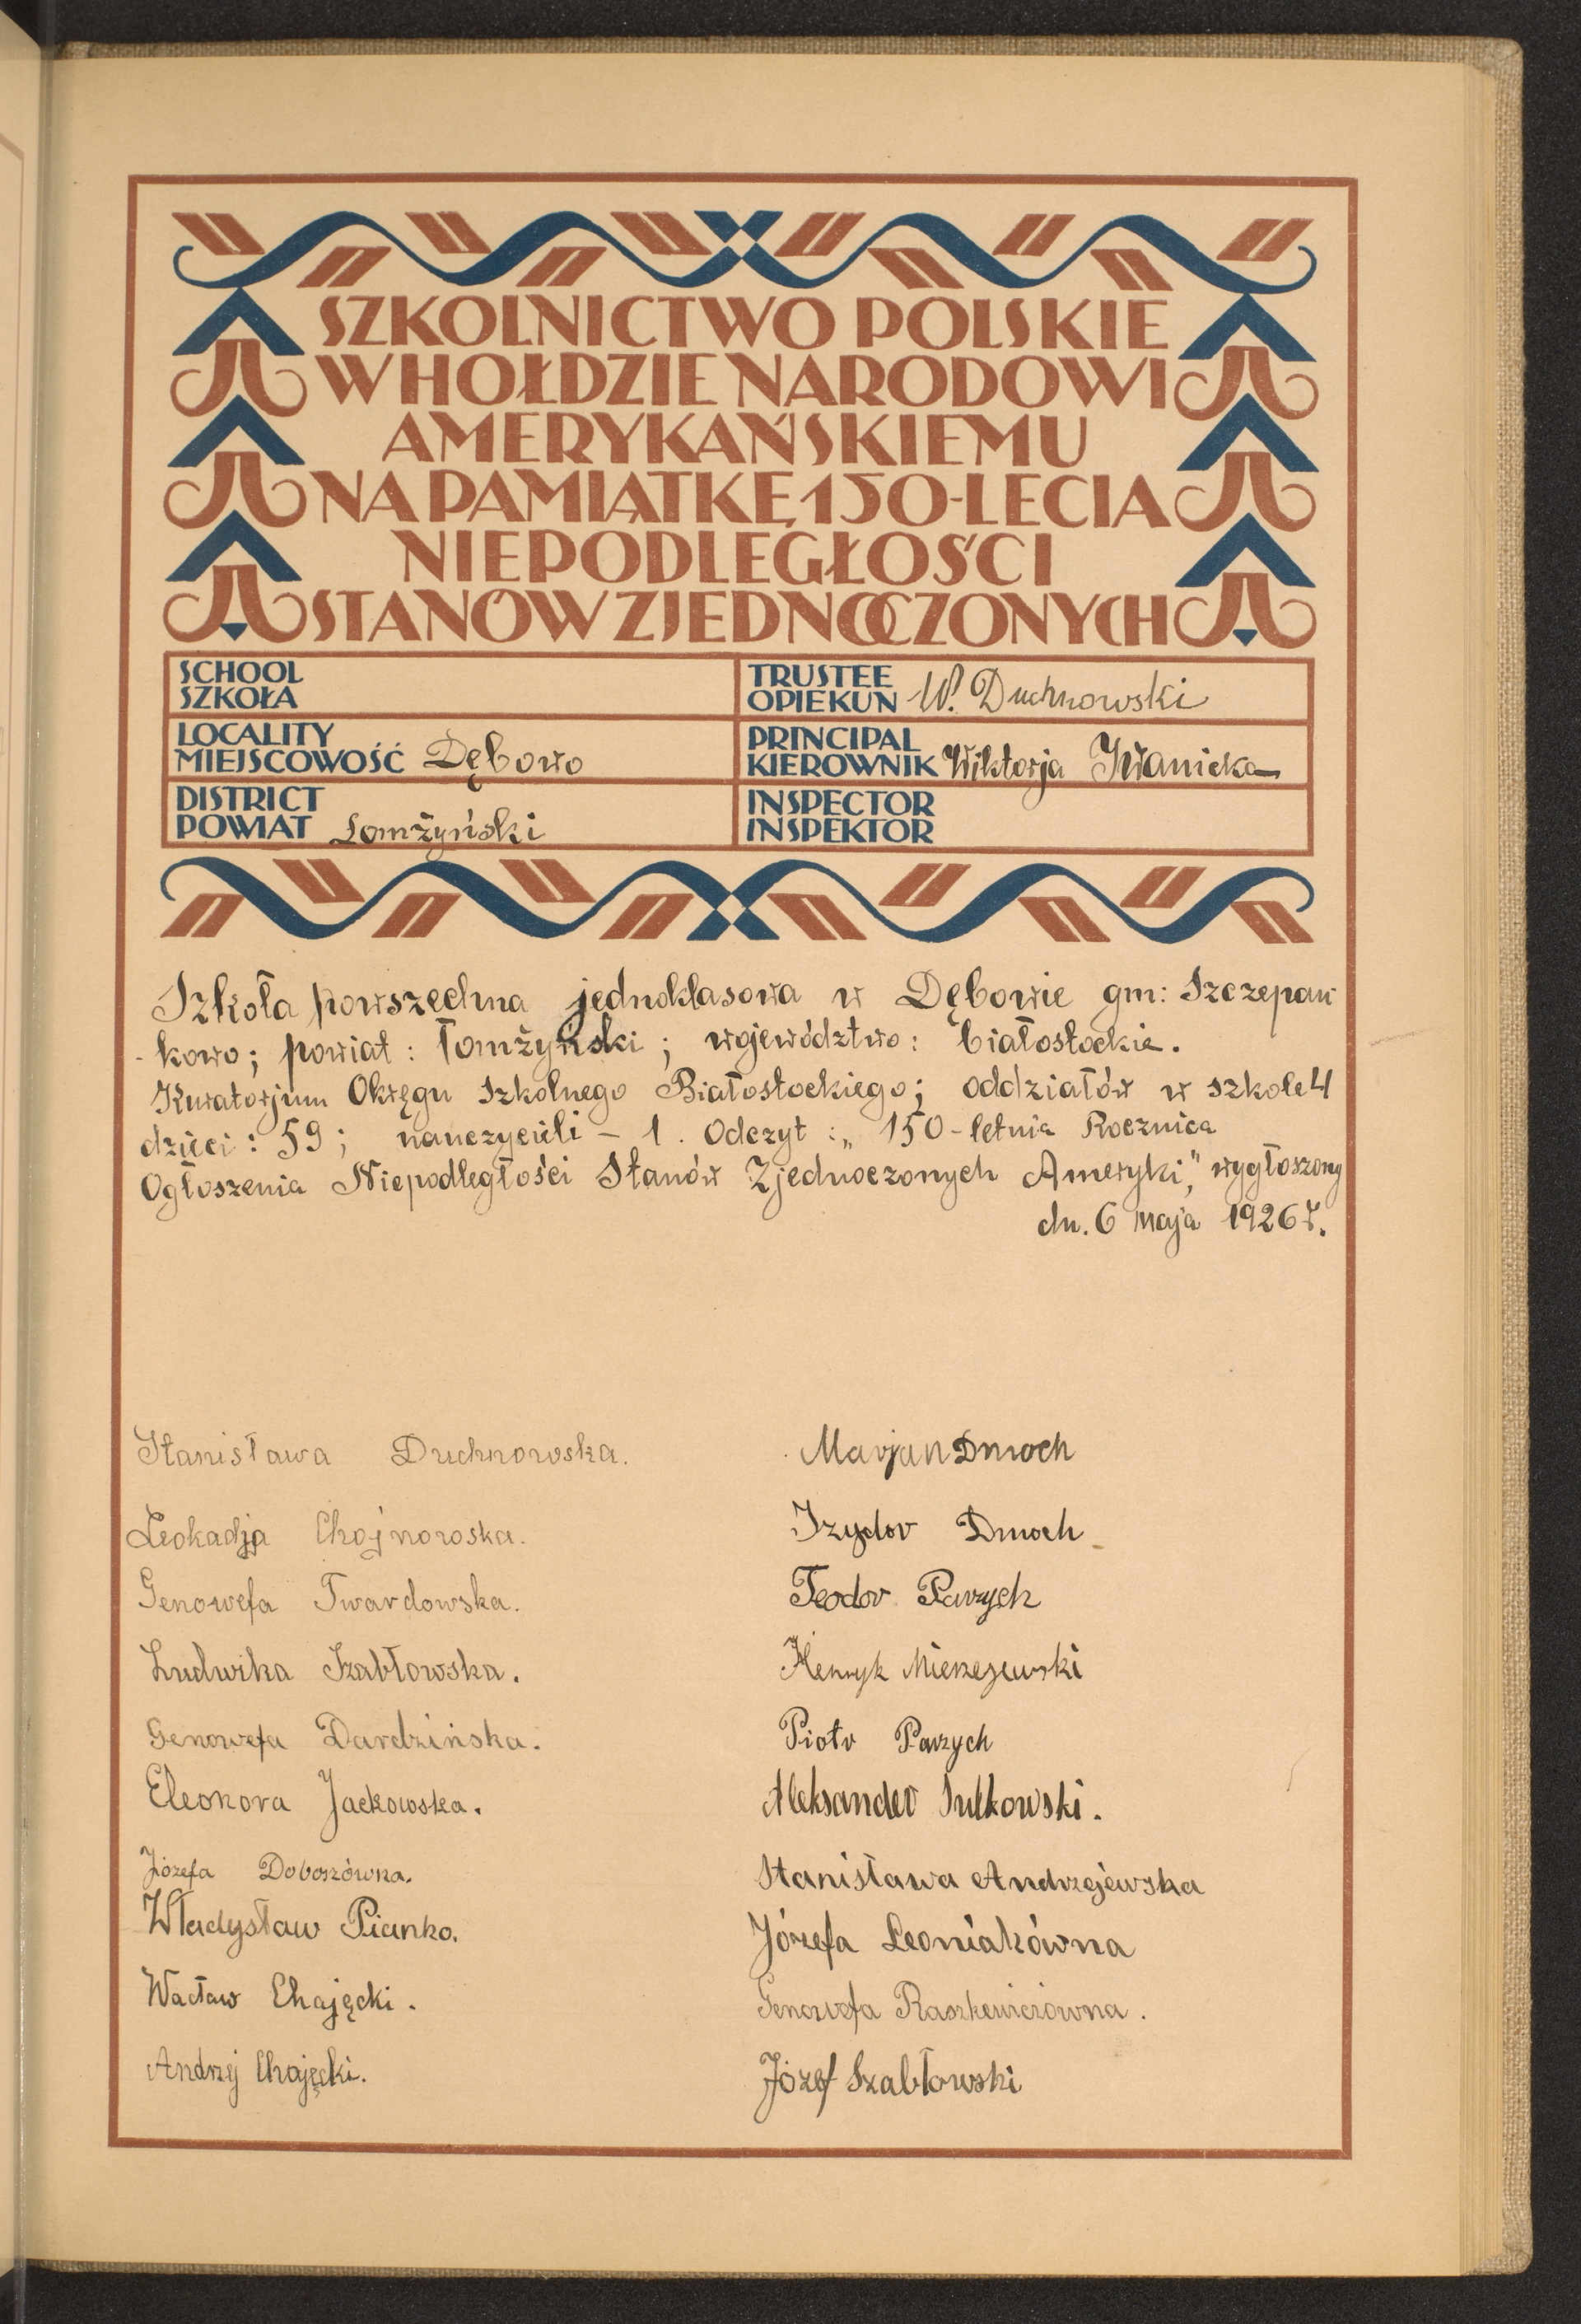 SZKOLNICTWO POLSKIE
W HOŁDZIE NARODOWI
AMERYKAŃSKIEMU
NA PAMIĄTKĘ 150-LECIA
NIEPODLEGŁOŚCI
STANÓW ZJEDNOCZONYCH
SCHOOL
SZKOŁA
TRUSTEE
OPIEKUN W. Duchnowski
LOCALITY
MIEJSCOWOŚĆ Dębowo
PRINCIPAL
KIEROWNIK Wiktorja Iwanicka
DISTRICT
POWIAT Łomżyński
INSPECTOR
INSPEKTOR
Szkoła powszechna jednoklasowa w Dębowie gm: Szczepan-
-kowo; powiat: Łomżyński; województwo: białostockie.
Kuratorjum Okręgu Szkolnego Białostockiego; oddziałów w szkole 4
dzieci: 59; nauczycieli - 1. Odczyt: „150-letnia Rocznica
Ogłoszenia Niepodległości Stanów Zjednoczonych Ameryki," wygłoszony
dn. 6 maja 1926 r.
Stanisława Duchnowska.
Leokadja Chojnowska.
Genowefa Twardowska.
Ludwika Szabłowska.
Genowefa Dardzińska.
Eleonora Jackowska.
Józefa Doboszówna.
Władysław Pianko.
Wacław Chajęcki.
Andrzej Chajęcki.
Marjan Dmoch
Izydor Dmoch
Teodor Parzych
Henryk Mierzejewski
Piotr Parzych
Aleksander Sulkowski.
Stanisława Andrzejewska
Józefa Leoniakówna
Genowefa Raszkewiczówna.
Józef Szabłowski